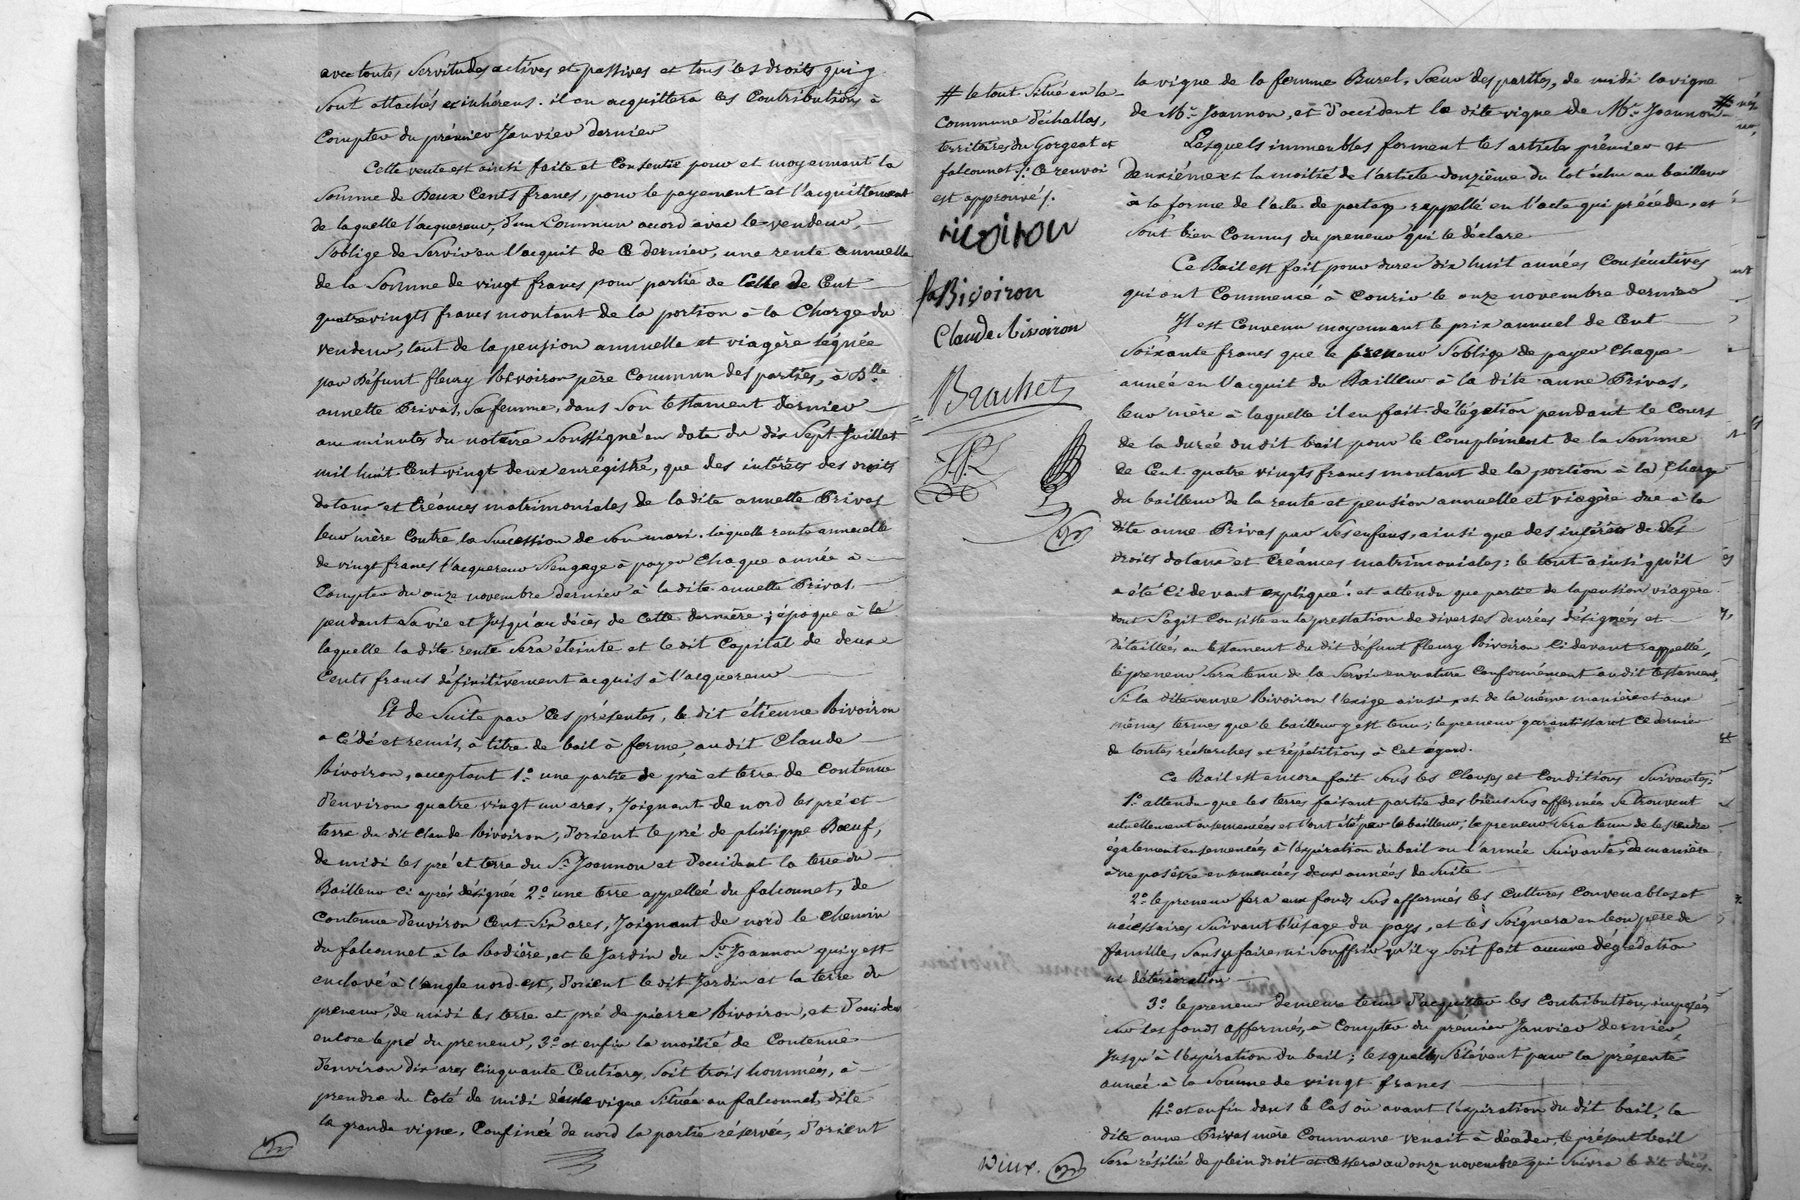 avec toutes Servitudes actives et passives et tous les droits qui y
Sont attachés et inhérens. il en acquittera les Contributions à
Compter du prémier Janvier dernier
Cette vente est ainsi faite et Consentie pour et moyennant la
Somme de Deux Cents francs, pour le payement et l'acquittement
de laquelle l'acquereur, d'un Commun accord avec le vendeur,
S'oblige de Servir en l'acquit de Ce dernier, une rente annuelle
de la Somme de vingt francs pour partie de Celle de Cent
quatre vingts francs montant de la portion à la Charge du
Vendeur, tant de la pension annuelle et viagère léguée
par Défunt fleury Rivoiron père Commun des parties, à Dlle
annette Privas, Sa femme, dans Son testament dernier
aux minutes du notaire Soussigné en date du dix Sept Juillet
mil huit Cent vingt deux enrégistré, que des intérêts des droits
dotaux et Créances matrimoniales de la dite annette Privas
leur mère Contre la Succession de Son mari. laquelle rente annuelle
de vingt francs l'acquereur S'engage à payer Chaque année à
Compter du onze novembre dernier à la dite annette Privas
pendant Sa vie et Jusqu'au décès de Cette dernière; époque à la
laquelle la dite rente Sera éteinte et le dit Capital de deux
Cents francs définitivement acquis à l'acquereur
Et de Suite par Ces présentes, le dit étienne Rivoiron
a Cédé et remis, à titre de bail à ferme, au dit Claude
Rivoiron, acceptant 1.° une partie de pré et terre de Contenue
d'environ quatre vingt un ares, Joignant de nord les pré et
terre du dit Claude Rivoiron, d'orient le pré de philippe Bœuf,
de midi les pré et terre du Sr. Joannon et d'occident la terre du
Bailleur Ci après désignée 2.° une terre appelleé du falconnet, de
Contenue d'environ Cent Six ares, Joignant de nord le Chemin
du falconnet à la Bodière, et le Jardin du Sr. Joannon qui y est
enclavé à l'angle nord-est, d'orient le dit Jardin et la terre du
preneur, de midi les terre et pré de pierre Rivoiron, et d'occident
encore le pré du preneur, 3.° et enfin la moitié de Contenue
d'environ dix ares Cinquante Centiares, Soit trois hommées, à
prendre du Coté de midi d'une vigne Située au falconnet, dite
la grande vigne, Confineé de nord la partie réservée, d'orient
# le tout Situé en la
Commune d'échallas,
territoires du Gorgeat et
falconnet /: Ce renvoi
est approuvé/.
rivoiron
Rivoiron
Claude Rivoiron
Brachet
la vigne de la femme Burel, Sœur des parties, de midi la vigne
de Mr. Joannon, et d'occident la dite vigne de Mr. Joannon #
Lesquels immeubles forment les articles prémier et
deuxième et la moitié de l'article douzième du lot échu au bailleur
à la forme de l'acte de partage rappellé en l'acte qui précède, et
Sont bien Connus du preneur qui le déclare
Ce Bail est fait pour durer dix huit années Consécutives
qui ont Commencé à Courir le onze novembre dernier
Il est Convenu moyennant le prix annuel de Cent
Soixante francs que le preneur S'oblige de payer Chaque
année en l'acquit du Bailleur à la dite anne Privas,
leur mère à laquelle il en fait délégation pendant le Cours
de la durée du dit bail pour le Complément de la Somme
de Cent quatre vingts francs montant de la portion à la Charge
du bailleur de la rente et pension annuelle et viagère due à la
dite anne Privas par Ses enfans, ainsi que des intérêts de Ses
droits dotaux et Créances matrimoniales: le tout ainsi qu'il
a été Ci devant expliqué: et attendu que partie de la pension viagère
dont S'agit Consiste en la prestation de diverses denrées désignées et
détaillées au testament du dit défunt fleury Rivoiron Ci devant rappellé,
le preneur Sera tenu de la Servir en nature Conformément au dit testament,
Si la dite veuve Rivoiron l'exige ainsi, et de la même manière et aux
mêmes termes que le bailleur y est tenu; le preneur garantissant Ce dernier
de toutes récherches et répétitions à Cet égard.
Ce Bail est encore fait Sous les Clauses et Conditions Suivantes:
1.° attendu que les terres faisant partie des biens Sus affermés Se trouvent
actuellement ensemencées et l'ont été par le bailleur, le preneur Sera tenu de les rendre
également ensemencées, à l'expiration du bail ou l'année Suivante, de manière
à ne pas être ensemencées deux années de Suite
2.° le preneur fera aux fonds Sus affermés les Cultures Convenables et
nécessaires Suivant l'usage du pays, et les Soignera en bon père de
famille, Sans y faire, ni Souffrir qu'il y Soit fait aucune dégrédation
ni détérioration
3.° le preneur demeure tenu d'acquitter les Contributions imposées
Sur les fonds affermés, à Compter du premier Janvier dernier,
Jusqu'à l'expiration du bail; lesquelles S'élévent pour la présente
année à la Somme de vingt francs
4.° et enfin dans le Cas où avant l'expiration du dit bail, la
dite anne Privas mère Commune venait à décéder, le présent bail
Sera résilié de plein droit et cessera au onze novembre qui Suivra le dit décès.
Deux.